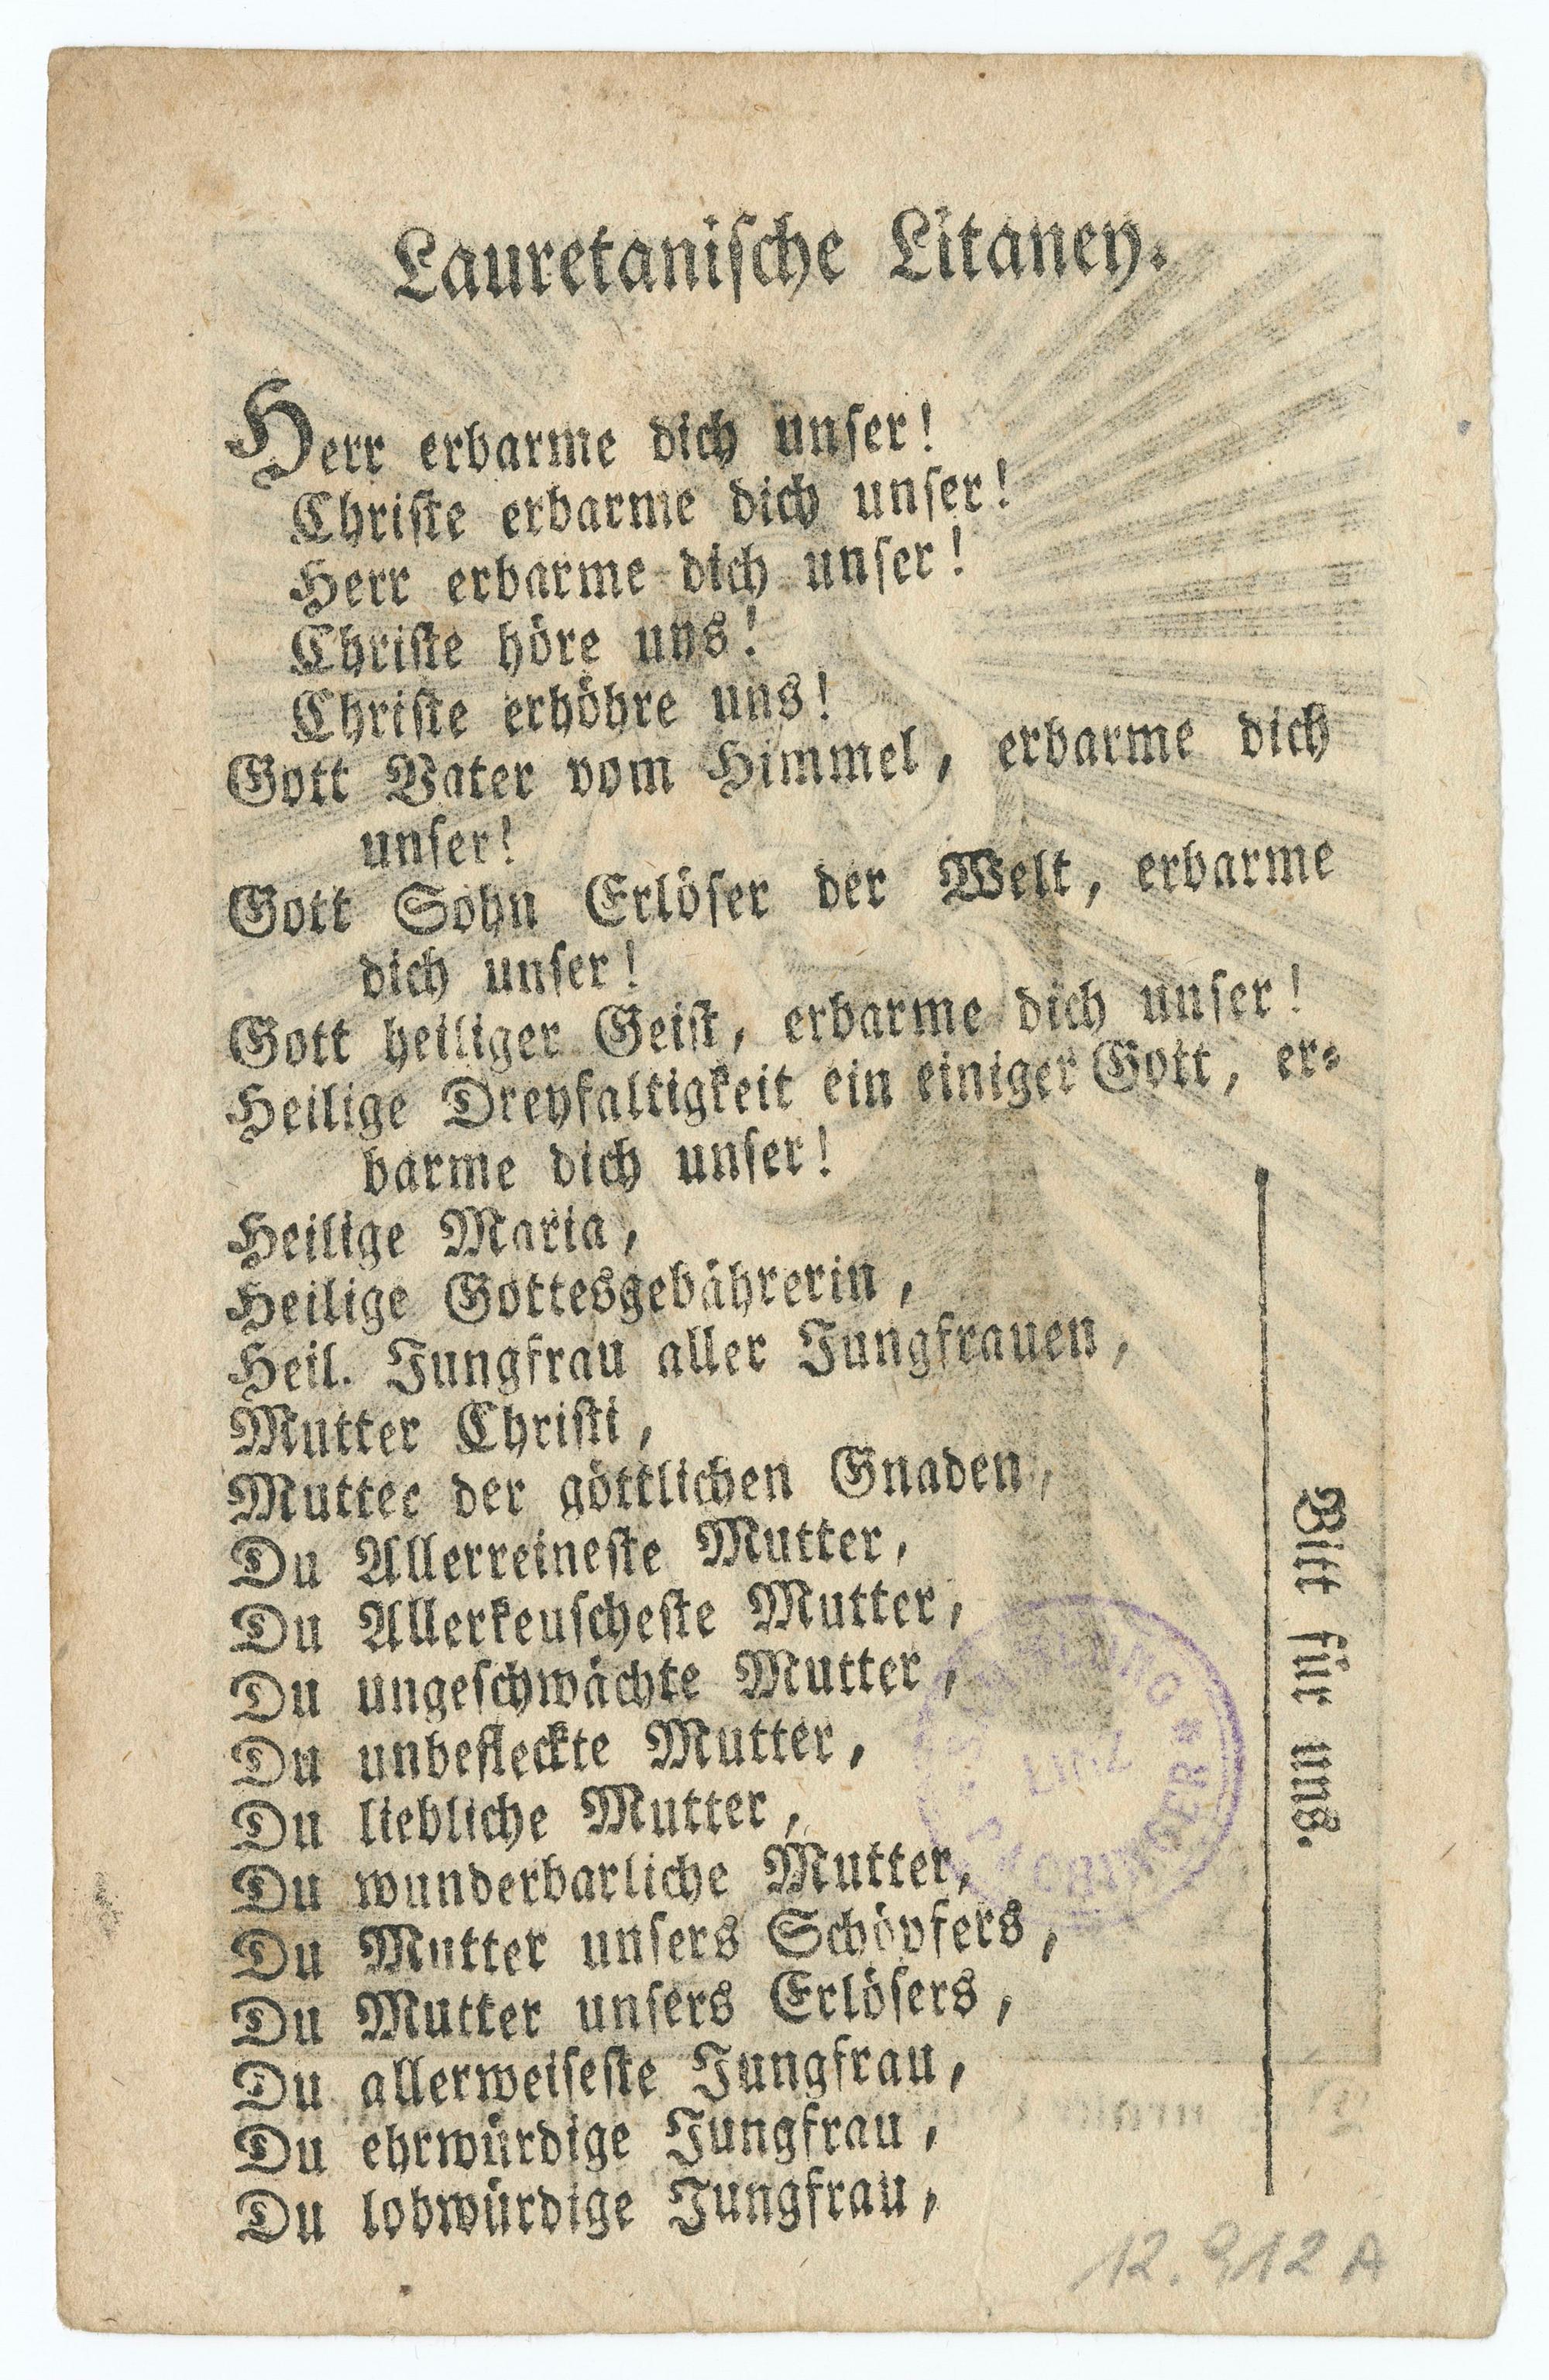 Lauretanische Litaney.
Herr erbarme dich unser!
Christe erbarme dich unser!
Herr erbarme dich unser!
Christe höre uns!
Christe erhöhre uns!
Gott Vater vom Himmel, erbarme dich
unser!
Gott Sohn Erlöser der Welt, erbarme
dich unser!
Gott heiliger Geist, erbarme dich unser!
Heilige Dreyfaltigkeit ein einiger Gott, er-
barme dich unser!
Heilige Maria,
Heilige Gottesgebährerin,
Heil. Jungfrau aller Jungfrauen,
Mutter Christi,
Mutter der göttlichen Gnaden,
Du Allerreineste Mutter,
Du Allerkeuscheste Mutter,
Du ungeschwächte Mutter,
Du unbefleckte Mutter,
Du liebliche Mutter,
Du wunderbarliche Mutter,
Du Mutter unsers Schöpfers,
Du Mutter unsers Erlösers,
Du allerweiseste Jungfrau,
Du ehrwürdige Jungfrau,
Du lobwürdige Jungfrau,
Bitt für uns.
LINZ
12.912 A